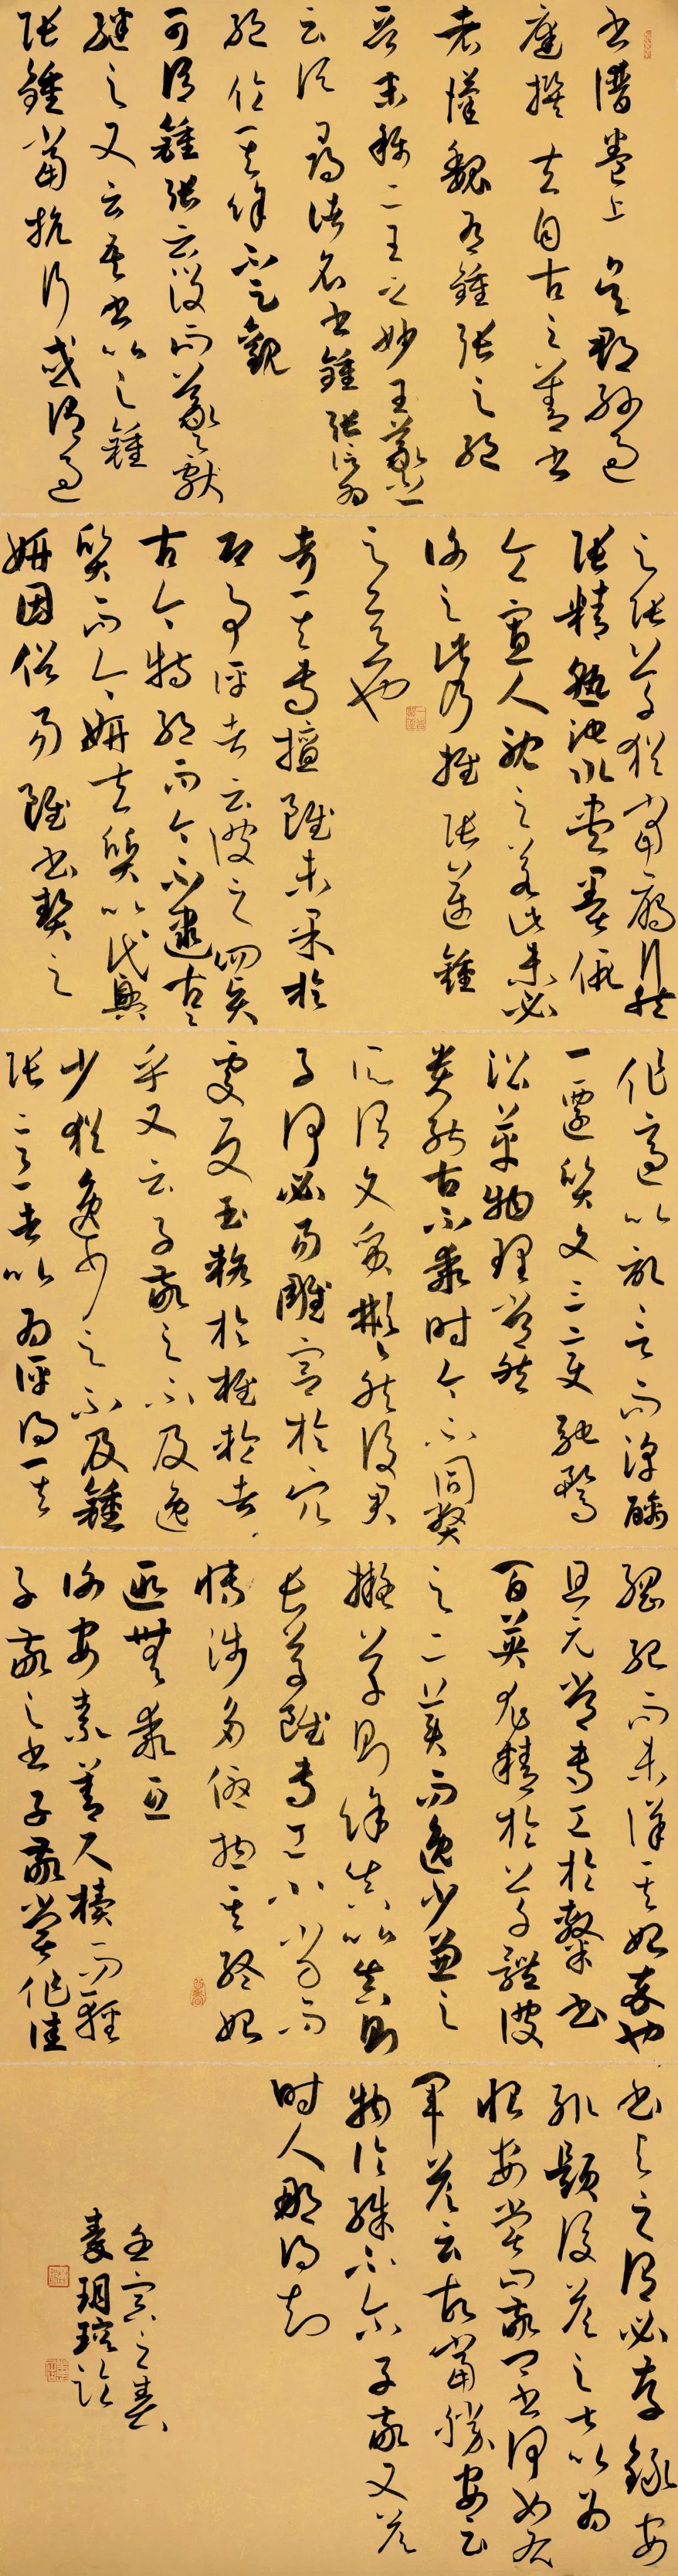 书谱卷上吴郡孙过
庭撰夫自古之善书
者汉魏有钟张之绝
晋末称二王之妙王羲之
云顷寻诸名书钟张信为
绝伦其余不足观
可谓钟张云没而羲献
继之又云吾书比之钟
张钟当抗行或谓过
之张草犹当雁行然
张精熟池水尽墨假
令寡人耽之若此未必
谢之此乃推张迈钟
之意也
考其专擅虽未果于
前规摭以兼通故无惭于
即事评者云彼之四贤
古今特绝而今不逮古古
质而今妍夫质以代兴
妍因俗易虽书契之
作适以记言而淳醨
一迁质文三变驰骛
沿革物理常然
贵能古不乖时今不同弊
所谓文质彬彬然后君
子何必易雕宫于穴
处反玉辂于椎轮者
乎又云子敬之不及逸
少犹逸少之不及钟
张意者以为评得其
纲纪而未详其始卒也
且元常专工于隶书
百英尤精于草体彼
之二美而逸少兼之
拟草则余真比真则
长草虽专工小劣而
博涉多优总其终始
匪无乖互
谢安素善尺牍而轻
子敬之书子敬尝作佳
书与之谓必存录安
辄题后答之甚以为
恨安尝问敬卿书何如右
军答云故当胜安云
物论殊不尔子敬又答
时人那得知
壬寅之春